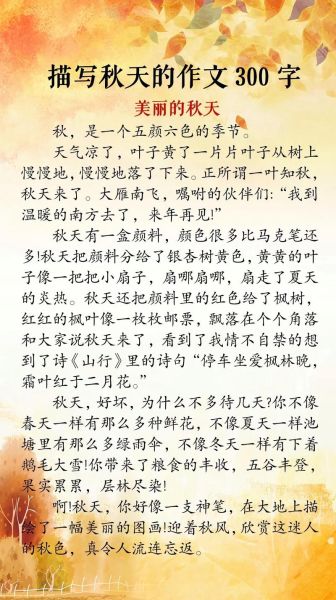 描写秋天的作文300字
美丽的秋天
秋，是一个五颜六色的季节。
天气凉了，叶子黄了一片片叶子从树上
慢慢地，慢慢地落了下来。正所谓一叶知秋，
秋天来了。大雁南飞，嘱咐的伙伴们：“我到
温暖的南方去了，来年再见!”
秋天有一盒颜料，颜色很多比马克笔还
多!秋天把颜料分给了银杏树黄色，黄黄的叶
子像一把把小扇子，扇哪扇哪，扇走了夏天
的炎热。秋天还把颜料里的红色给了枫树，
红红的枫叶像一枚枚邮票，飘落在个个角落
和大家说秋天来了，看到了我情不自禁的想
到了诗《山行》里的诗句“停车坐爱枫林晚，
霜叶红于二月花。”
秋天，好坏，为什么不多待几天?你不像
春天一样有那么多种鲜花，不像夏天一样池
塘里有那么多绿雨伞，不像冬天一样有下着
鹅毛大雪!你带来了粮食的丰收，五谷丰登，
果实累累，层林尽染!
啊!秋天，你好像一支神笔，在大地上描
绘了一幅美丽的图画!迎着秋风，欣赏这迷人
的秋色，真令人流连忘返。